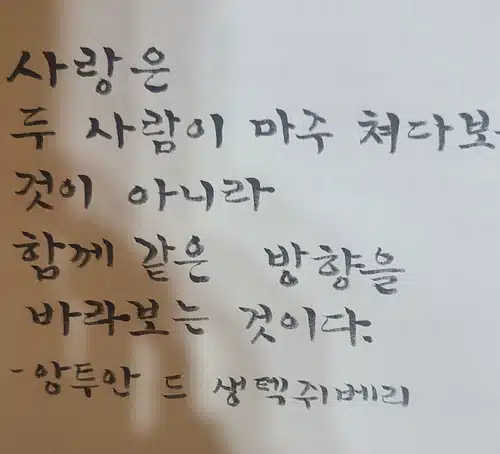 사랑은
두 사람이 마주 쳐다보
것이 아니라
함께 같은 방향을
바라보는 것이다.
-앙투안 드 생텍쥐베리